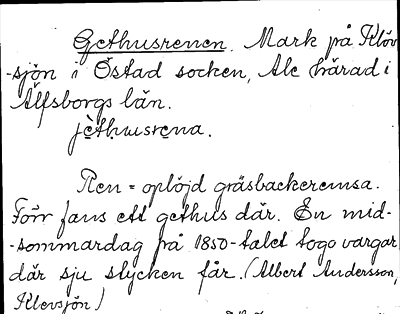 Gethusrenen. Mark på Klöv
-sjön i Östad socken, Ale härad i
Älfsborgs län.
jèthusrena.
Ren = oplöjd gräsbackeremsa.
Förr fans ett gethus där. En mid-
-sommardag på 1850-talet togo vargar
där sju stycken får. (Albert Andersson,
Klevsjön)